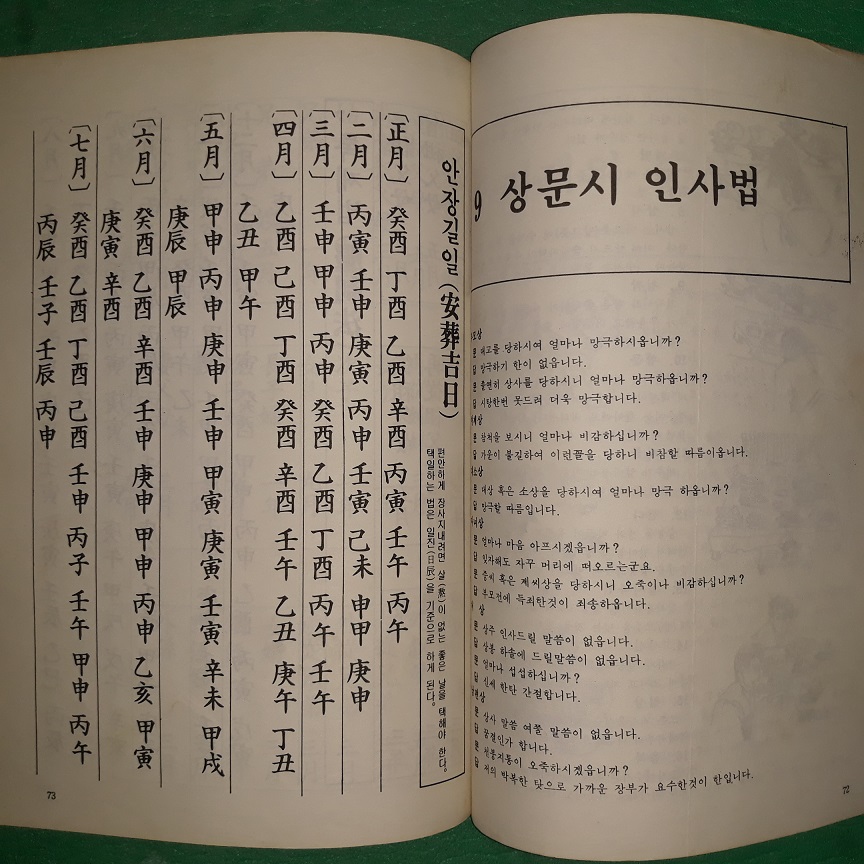 9 상문시 인사법
문 대고를 당하시여 얼마나 망극하시옵니까?
답 망극하기 한이 없읍니다.
문 졸연히 상사를 당하시니 얼마나 망극하옵니까?
답 시탕한번 못드려 더욱 망극합니다.
문 상처을 보시니 얼마나 비감하십니까?
답 가운이 불길하여 이런꼴을 당하니 비참할 따름이옵니다.
문 대상 혹은 소상을 당하시여 얼마나 망극 하옵니까?
답 망극할 따름입니다.
문 얼마나 마음 아프시겠읍니까?
답 잊자해도 자꾸 머리에 떠오르는군요.
문 중씨 혹은 계씨상을 당하시니 오죽이나 비감하십니까?
답 부모전에 득죄한것이 죄송하옵니다.
상
문 상주 인사드릴 말씀이 없읍니다.
답 상봉 하솔에 드릴말씀이 없읍니다.
문 얼마나 섭섭하십니까?
답 신세 한탄 간절합니다.
문 상사 말씀 여쭐 말씀이 없읍니다.
답 꿈결인가 합니다.
문 천붕지통이 오죽하시겠읍니까?
답 저의 박복한 탓으로 가까운 장부가 요수한것이 한입니다.
72
안장길일(安葬吉日)
편안하게 장사지내려면 살(煞)이 없는 좋은 날을 택해야 한다.
택일하는 법은 일진(日辰)을 기준으로 하게 된다.
〔正月〕 癸酉 丁酉 乙酉 辛酉 丙寅 壬午 丙午
〔二月〕 丙寅 壬申 庚寅 丙申 壬寅 己未 申甲 庚申
〔三月〕 壬申 甲申 丙申 癸酉 乙酉 丁酉 丙午 壬午
〔四月〕 乙酉 己酉 丁酉 癸酉 辛酉 壬午 乙丑 庚午 丁丑
乙丑 甲午
〔五月〕 甲申 丙申 庚申 壬申 甲寅 庚寅 壬寅 辛未 甲戌
庚辰 甲辰
〔六月〕 癸酉 乙酉 辛酉 壬申 庚申 甲申 丙申 乙亥 甲寅
庚寅 辛酉
〔七月〕 癸酉 乙酉 丁酉 己酉 壬申 丙子 壬午 甲申 丙午
丙辰 壬子 壬辰 丙申
73